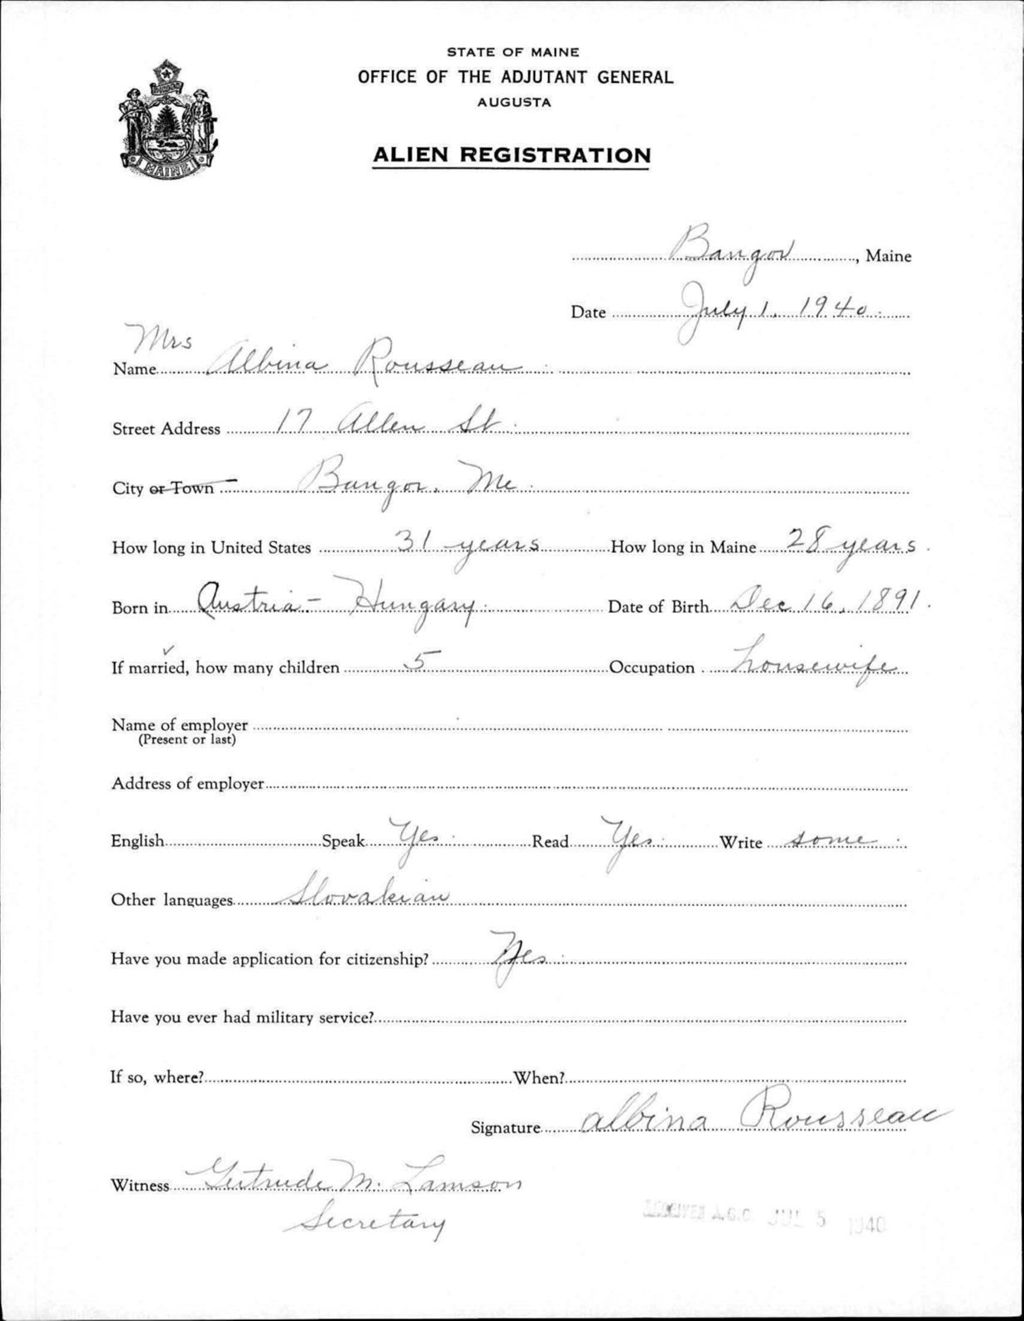 STATE OF MAINE
OFFICE OF THE ADJUTANT GENERAL
AUGUSTA
MAINE
ALIEN REGISTRATION
Bangor, Maine
Date July 1, 1940
Mrs
Name Albina Rousseau
Street Address 17 Allen St
City or Town Bangor, Me
How long in United States 31 years How long in Maine 28 years
Born in Austria-Hungary Date of Birth Dec 16, 1891
If married, how many children 5 Occupation housewife
Name of employer
(Present or last)
Address of employer
English Speak Yes Read Yes Write some
Other languages Slovakian
Have you made application for citizenship? Yes
Have you ever had military service?
If so, where? When?
Signature Albina Rousseau
Witness Gertrude M. Lamson
Secretary
RECEIVED A.G.O. JUL 5 1940